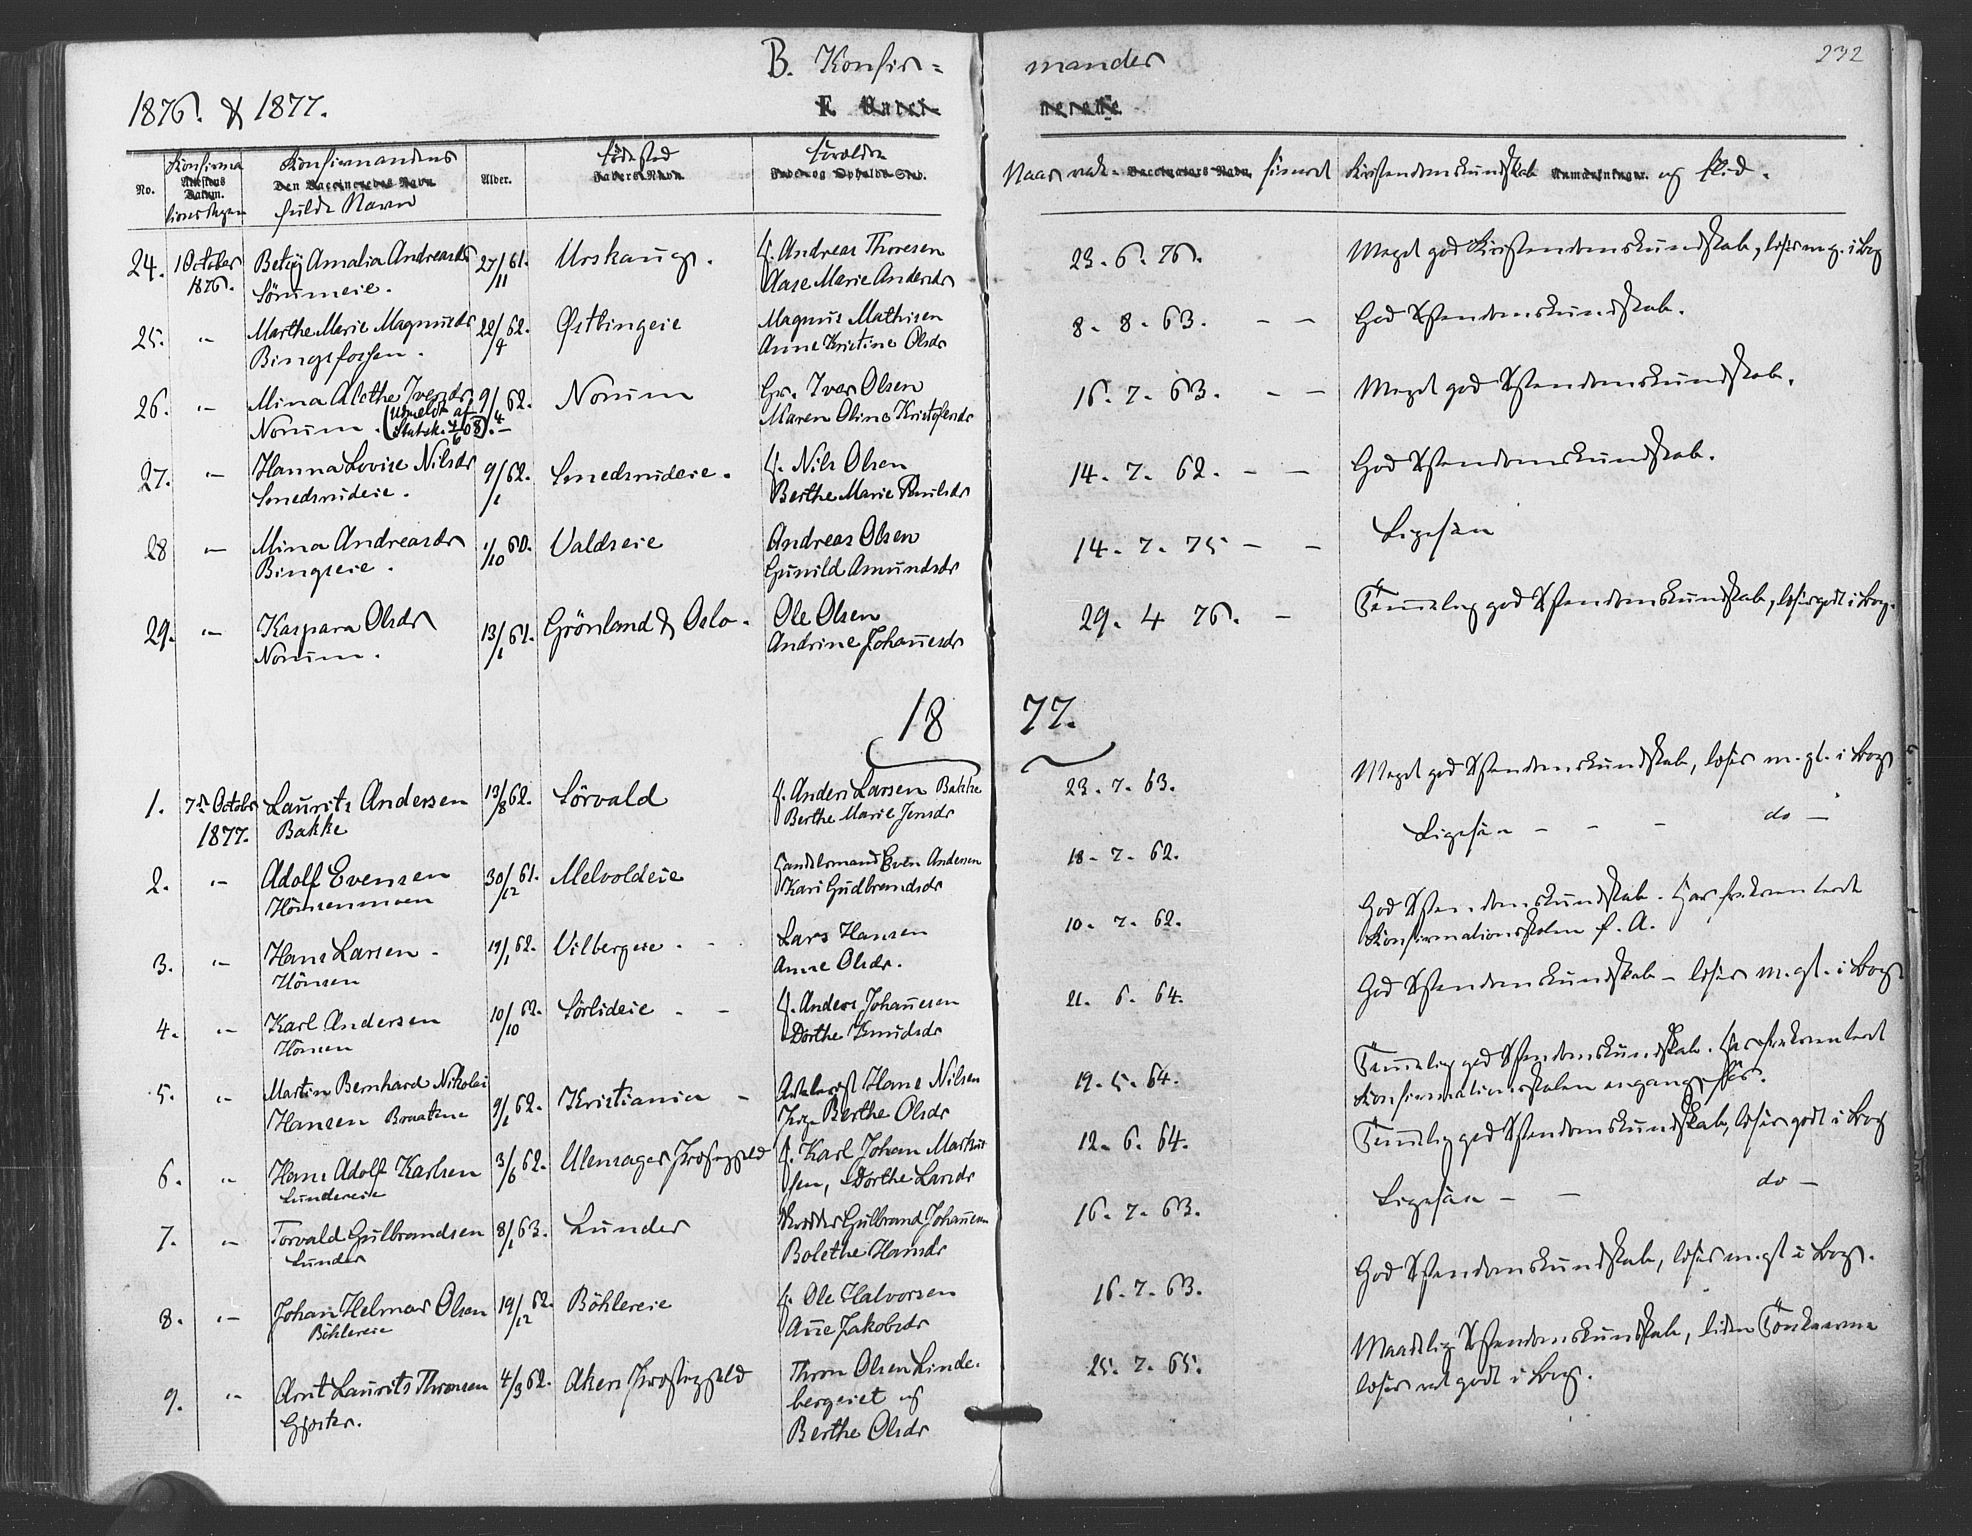 232
B. Konfir= mander
1876 & 1877.
No. Konfirma tions dagen Konfirmandens fulde Navn Alder. Födested Forældre Naar vak- sineret Kristendomskundskab og flid.
24. 1 October 1876. Betzy Amalia Andreasdr Sörumeie. 27/11 61. Urskoug. f. Andreas Thoresen Aase Marie Andersdr 23. 6. 76. Meget god Kristendomskundskab, læser m.g. i Bog
25. " Marthe Marie Magnusdr Bingsfossen. 22/4 62. Østbingeie Magnus Mathisen Anne Kristine Olsdr 8. 8. 63. - - God Xstendomskundskab.
26. " Mina Alethe Iversdr Norum. (Udmeldt af Statsk. 4/6 08). 9/4 62. Norum Gr. Iver Olsen Maren Oline Kristofersdr 16. 7. 63. - - Meget god Xstendomskundskab.
27. " Hanna Lovise Nilsdr Smedsrudeie. 9/1 62. Smedsrudeie. f. Nils Olsen Berthe Marie Poulsdr 14. 7. 62. - - God Xstendomskundskab.
28 " Mina Andreasdr Bingseie. 1/10 60. Valdseie Andreas Olsen Gunild Amundsdr 14. 7. 75 - - Ligesaa
29. " Kaspara Olsdr Norum. 13/1 61. Grönland & Oslo. Ole Olsen Andrine Johannesdr 29. 4 76. - Temmelig god Xstendomskundskab, læser godt i Bog.
18 77.
1. 7de Octobr 1877. Laurits Andersen Bakke 13/8 62. Sörvald f. Anders Larsen Bakke Berthe Marie Jensdr 23. 7. 63. Meget god Xstendomskundskab, læser m.gt. i Bog
2. " Adolf Evensen Hönsenmoen 30/12 61. Melvoldeie Handelsmand Even Andersen Kari Gudbrandsdr 18. 7. 62. Ligesaa - - - do -
3. " Hans Larsen. Hönsen 19/1 62. Vilbergeie. - Lars Hansen Anne Olsdr. 10. 7. 62. God Xstendomskundskab. Har frekventert Konfirmationsskolen f. A.
4. " Karl Andersen Hönsen 10/10 62. Sörlideie - - f. Anders Johannesen Dorthe Knudsdr 21. 6. 64. God Xstendomskundskab - læser m.gt. i Bog
5. " Martin Bernhard Nikolai Hansen Braatene 9/1 62. Kristiania - Hans Nilsen Berthe Olsdr 19. 5. 64. Temmelig god Xstendomskundskab. Har frekventert Konfirmationsskolen engang för.
6. " Hans Adolf Karlsen Lundereie 3/6 62. Ulensager Præstegjeld f. Karl Johan Markus sen, Dorthe Larsdr 12. 6. 64. Temmelig god Xstendomskundskab, læser godt i Bog
7. " Torvald Gulbrandsen Lunder 8/1 63. Lunder Gulbrand Johannesen Bolethe Hansdr 16. 7. 63. Ligesaa - - do -
8. " Johan Helmar Olsen Böhlereie 19/12 62. Böhlereie f. Ole Halvorsen Anne Jakobsdr 16. 7. 63. God Xstendomskundskab, læser m.gt i Bog.
9. " Arnt Laurits Thronsen Gjoster. 4/3 62. Akers Præstegjeld Thron Olsen Linde- bergeiet og Berthe Olsdr 25. 7. 65. Maadelig Xstendomskundskab, liden Tænkeevne læser ret godt i Bog.